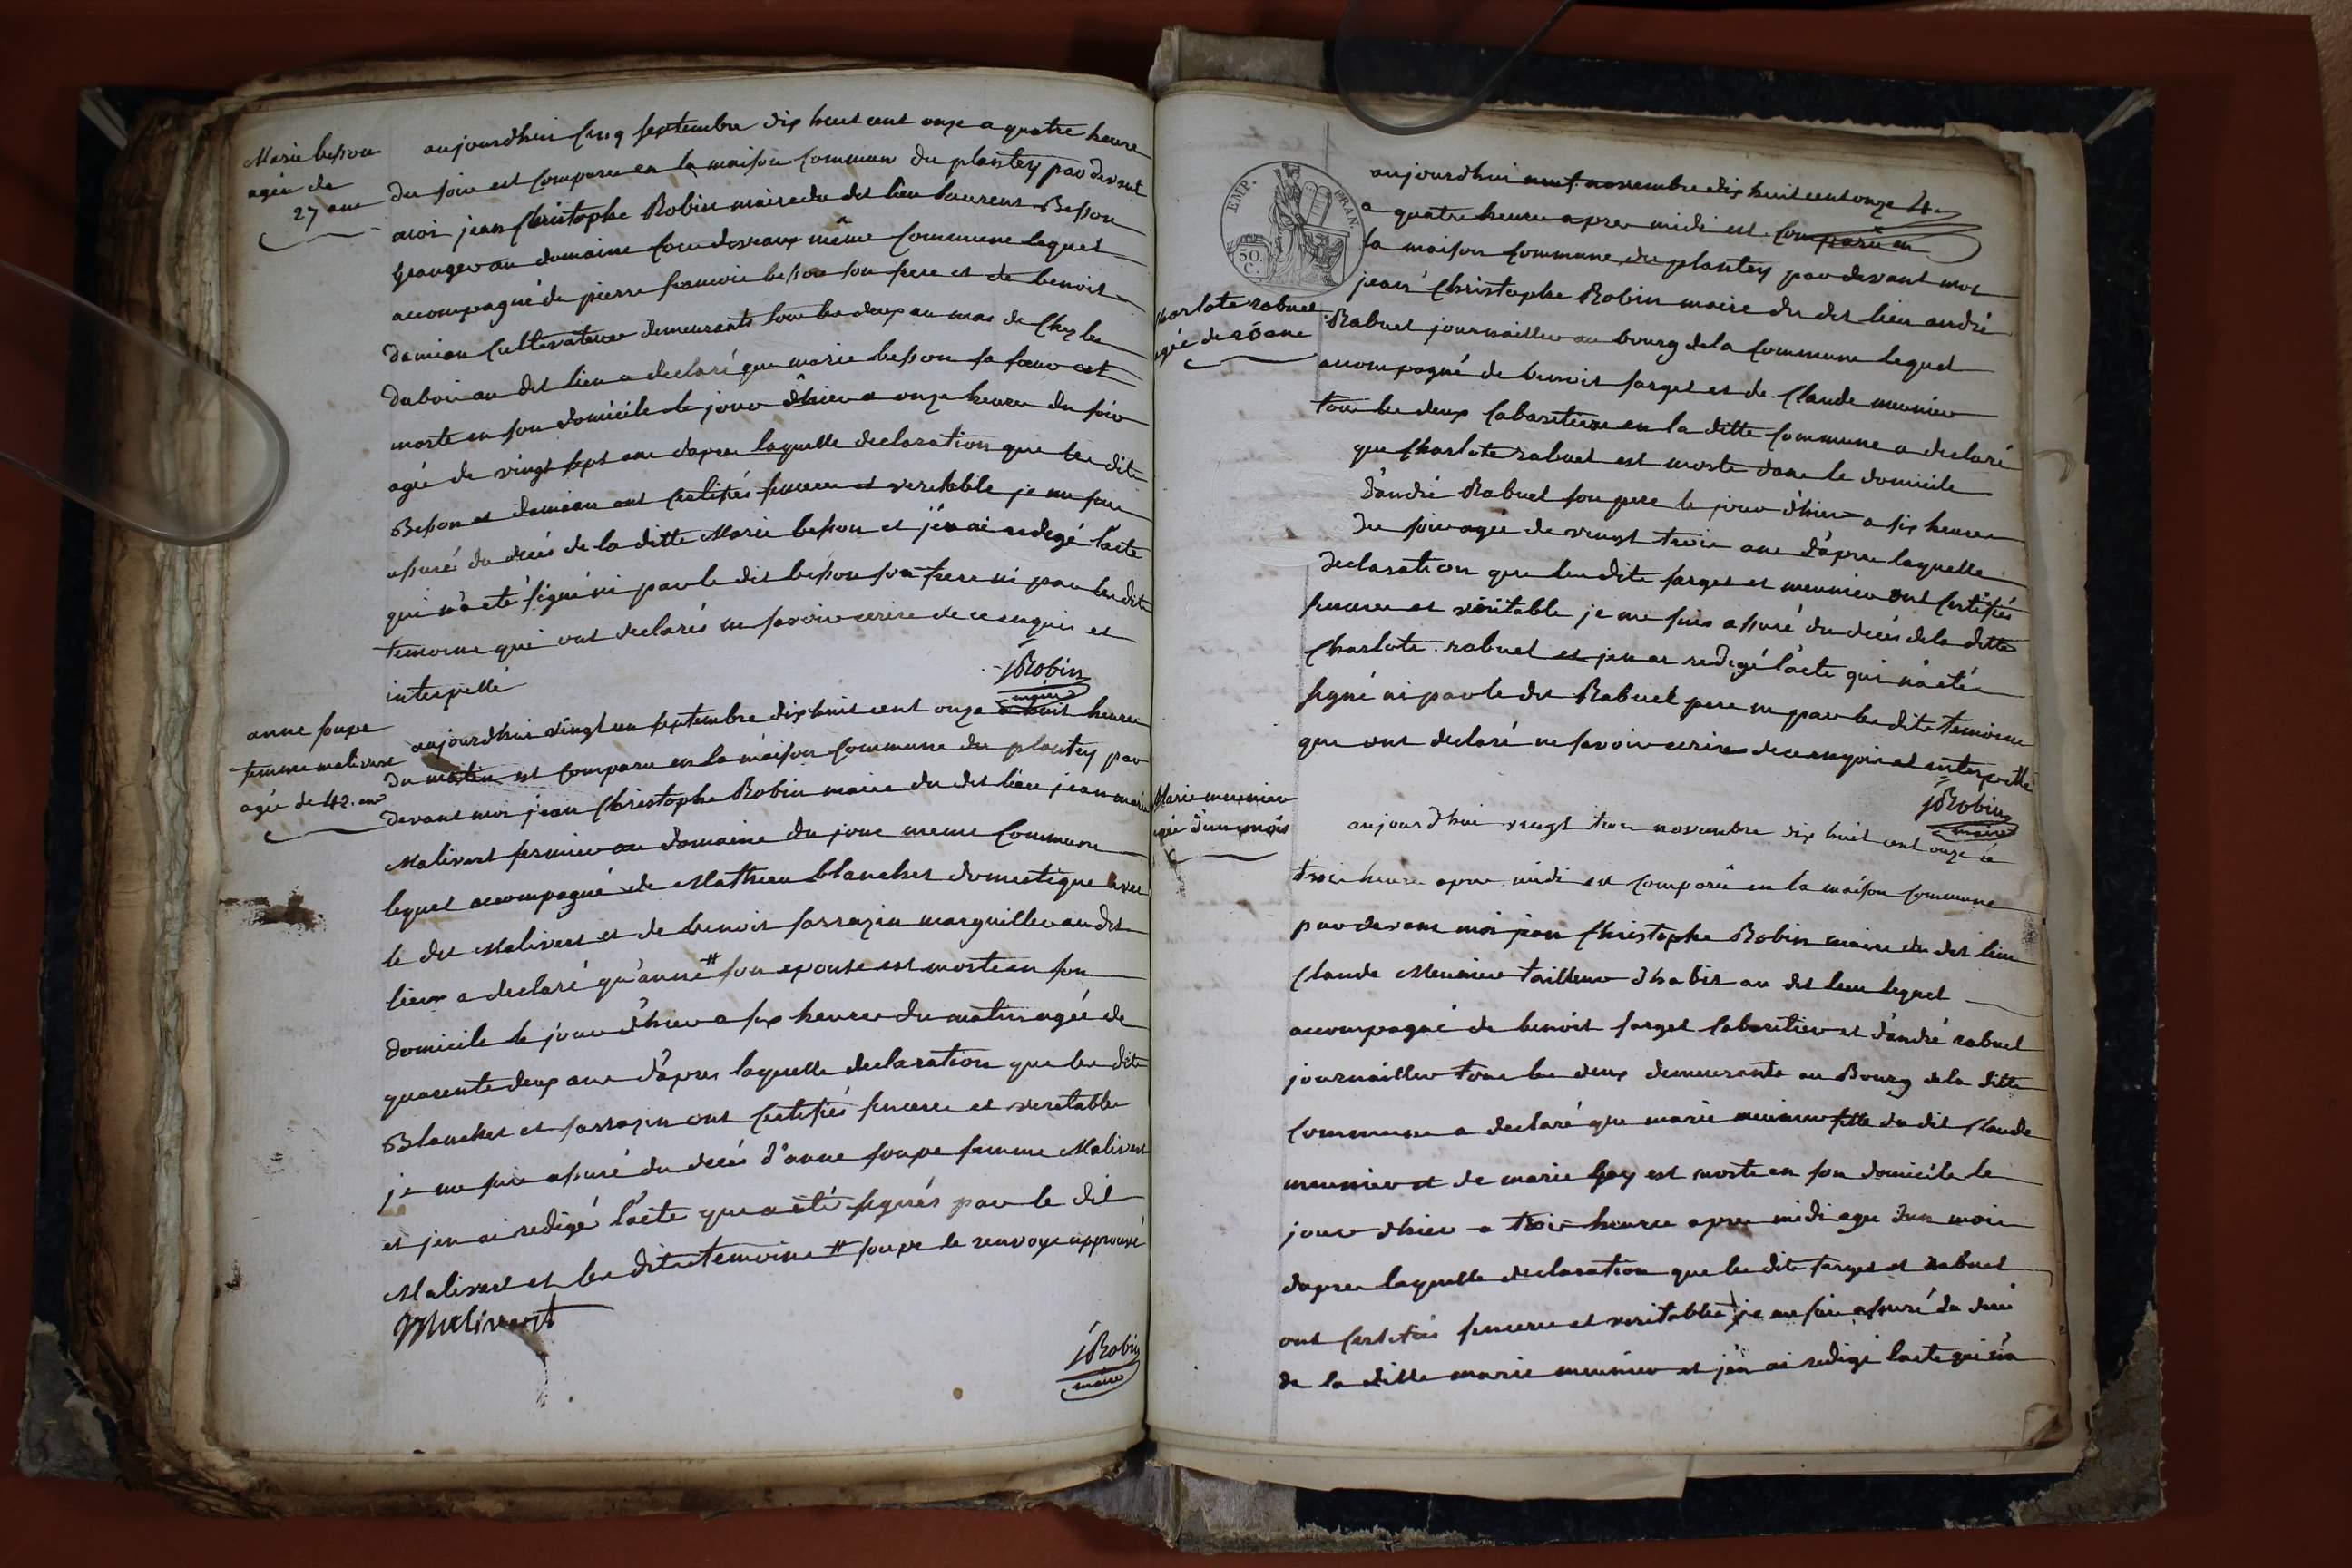 Marie besson
agée de
27 ans
aujourdhui cinq septembre dix huit cent onze a quatre heure
du soir est comparu en la maison commune du plantey par devant
moi jean christophe Robin maire du dit lieu laurent Besson
Granger au domaine même commune lequel
accompagné de pierre francois besson son frere et de benoit
damian cultivateurs demeurants tous les deux au mas de chez les
dubois au dit lieu a declaré que marie besson sa soeur est
morte en son domicile le jour d'hier a onze heures du soir
agée de vingt sept ans dapres laquelle declaration que les dits
Besson et damian ont certifiés sincere et veritable je me suis
assuré du decés de la ditte Marie besson et j'en ai redigé l'acte
qui n'a eté signé ni par le dit besson son frere ni par les dits
temoins qui ont declarés ne savoir ecrire de ce enquis et
interpellé
JRobin
maire
anne soupe
femme malivert
agée de 42. ans
aujourdhui vingt un septembre dix huit cent onze a huit heures
du matin est comparu en la maison commune du plantey par
devant moi jean christophe Robin maire du dit lieu jean marie
Malivert fermier au domaine du jonc meme commune
lequel accompagné de Mathieu blanchet domestique avec
le dit Malivert et de benoit sarrazin marguillier au dit
lieu a declaré qu'anne # son epouse est morte en son
domicile le jour d'hier a six heures du matin agée de
quarente deux ans d'apres laquelle declaration que les dits
Blanchet et sarrazin ont certifiés sincere et veritable
je me suis assuré du decés d'anne soupe femme Malivert
et jen ai redigé l'acte qui a eté signés par le dit
Malivert et les dits temoins # soupe le renvoye approuvé
Malivert
JRobin
maire
EMP. FRAN.
50.
C.
charlote rabuel
agée de 23 ans
aujourdhui neuf novembre dix huit cent onze 4
a quatre heures apres midi est comparu en
la maison commune du plantey par devant moi
jean christophe Robin maire du dit lieu andré
Rabuel journaillier au bourg de la commune lequel
accompagné de benoit farget et de claude meunier
tous les deux cabaretiers en la ditte commune a declaré
que charlote rabuel est morte dans le domicile
d'andré Rabuel son pere le jour d'hier a six heures
du soir agée de vingt trois ans d'apres laquelle
declaration que les dits farget et meunier ont certifiés
sincere et véritable je me suis assuré du decés de la ditte
charlote rabuel et jen ai redigé l'acte qui n'a eté
signé ni par le dit Rabuel pere ni par les dits temoins
qui ont declaré ne savoir ecrire de ce enquis et interpellé
JRobin
maire
Marie meunier
agée d'un mois
aujourdhui vingt trois novembre dix huit cent onze à
trois heures apres midi est comparû en la maison commune
par devant moi jean christophe Robin maire du dit lieu
Claude Meunier tailleur d'habit au dit lieu lequel
accompagné de benoit farget cabaretier et d'andré rabuel
journaillier tous les deux demeurants au Bourg de la ditte
commune a declaré que marie meunier fille du dit claude
meunier et de marie Gey est morte en son domicile le
jour d'hier a trois heures apres midi agee dun mois
dapres laquelle declaration que les dits farget et rabuel
ont certifiés sincere et veritable je me suis assuré du decés
de la ditte marie meunier et j'en ai redigé lacte qui n'a